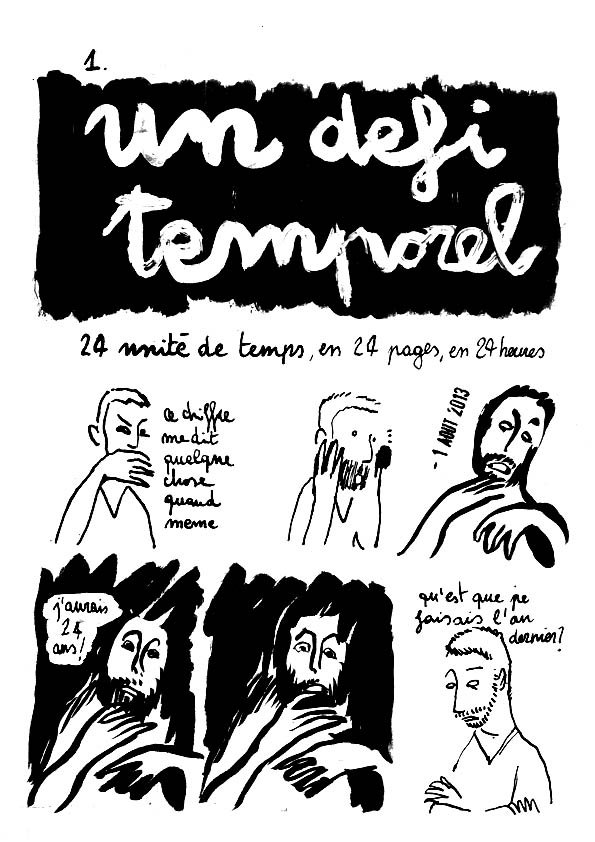 1.
un defi
temporel
24 unité de temps, en 24 pages, en 24 heures
ce chiffre
me dit
quelque
chose
quand
meme
- 1 AOUT 2013
j'aurais
24
ans!
qu'est que je
faisais l'an
dernier?